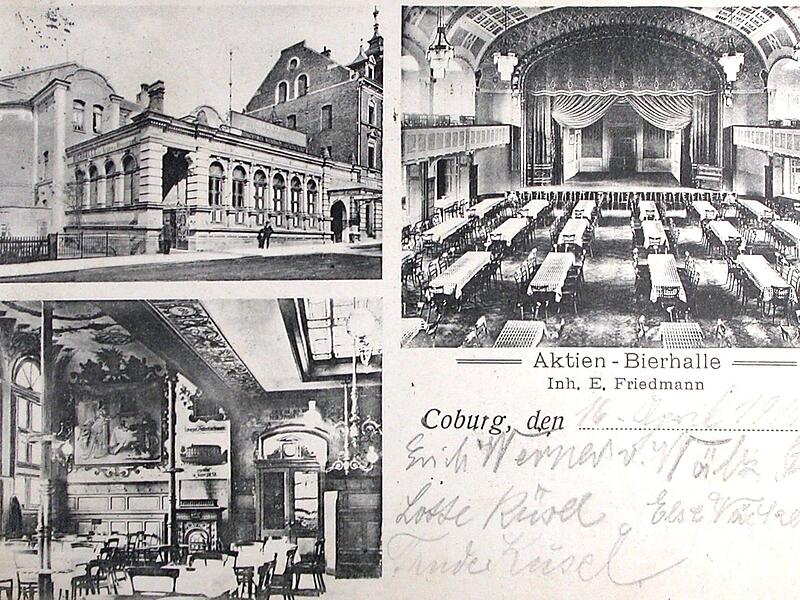 Aktien - Bierhalle
Inh. E. Friedmann
Coburg, den 16. April
Erich Werner
Lotte Küsel Else
Trude Küsel